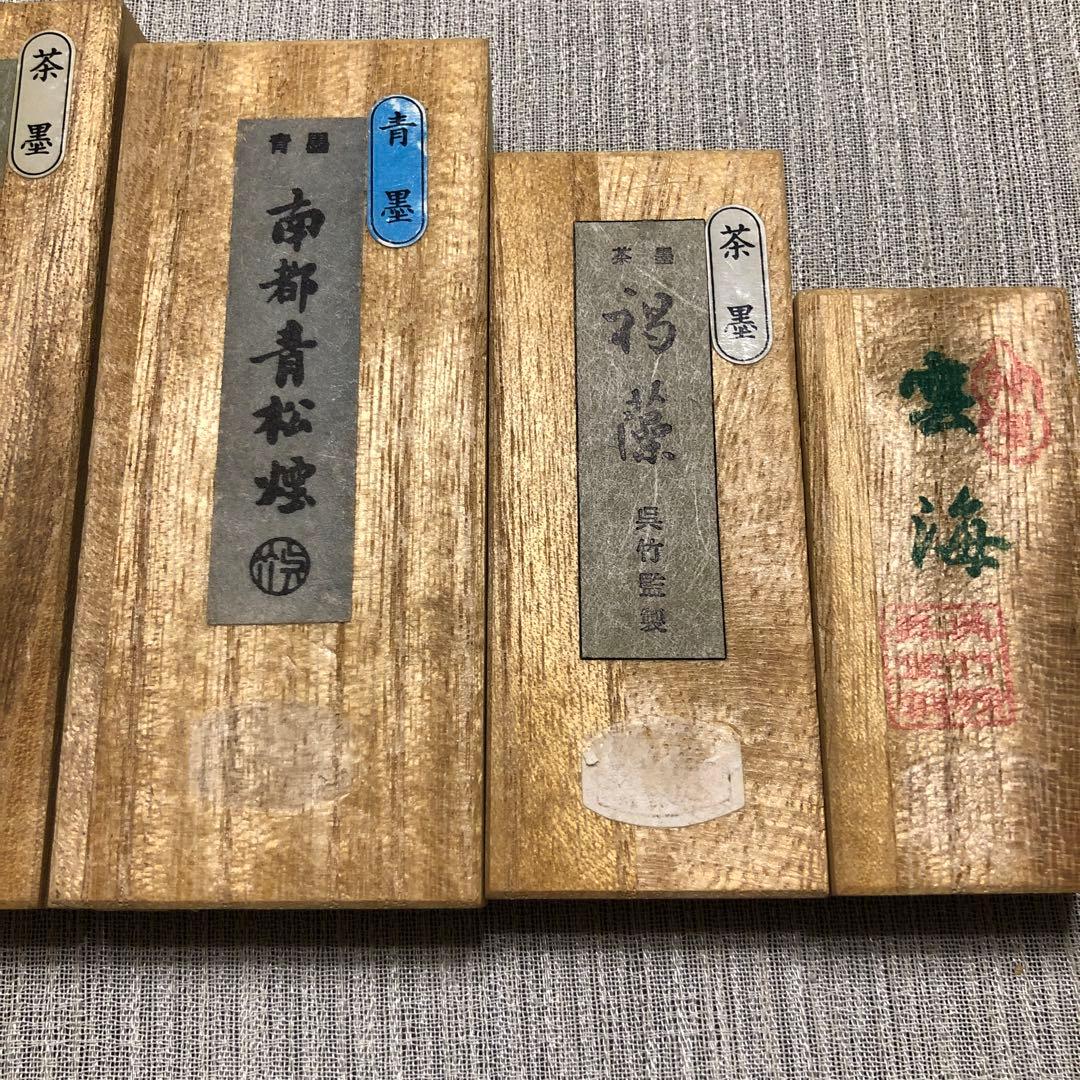 茶墨
青墨
青墨
南都青松煙
茶墨
茶墨
褐藻
呉竹監製
雲海